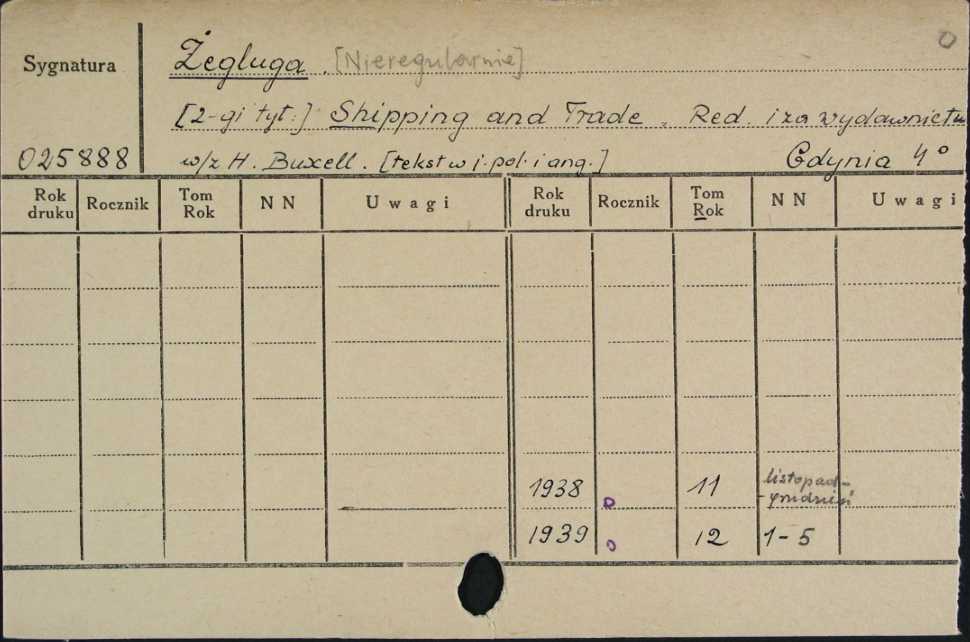 Sygnatura
Żegluga. [Nieregularnie]
0
[2-gi tyt:] Shipping and Trade. Red. i za wydawnictw
025888
w/z H. Buxell. [tekst w j. pol. i ang.] Gdynia 4°
Rok druku Rocznik Tom Rok NN Uwagi Rok druku Rocznik Tom Rok NN Uwagi
1938 o 11 listopad-
-grudzień
1939 o 12 1-5